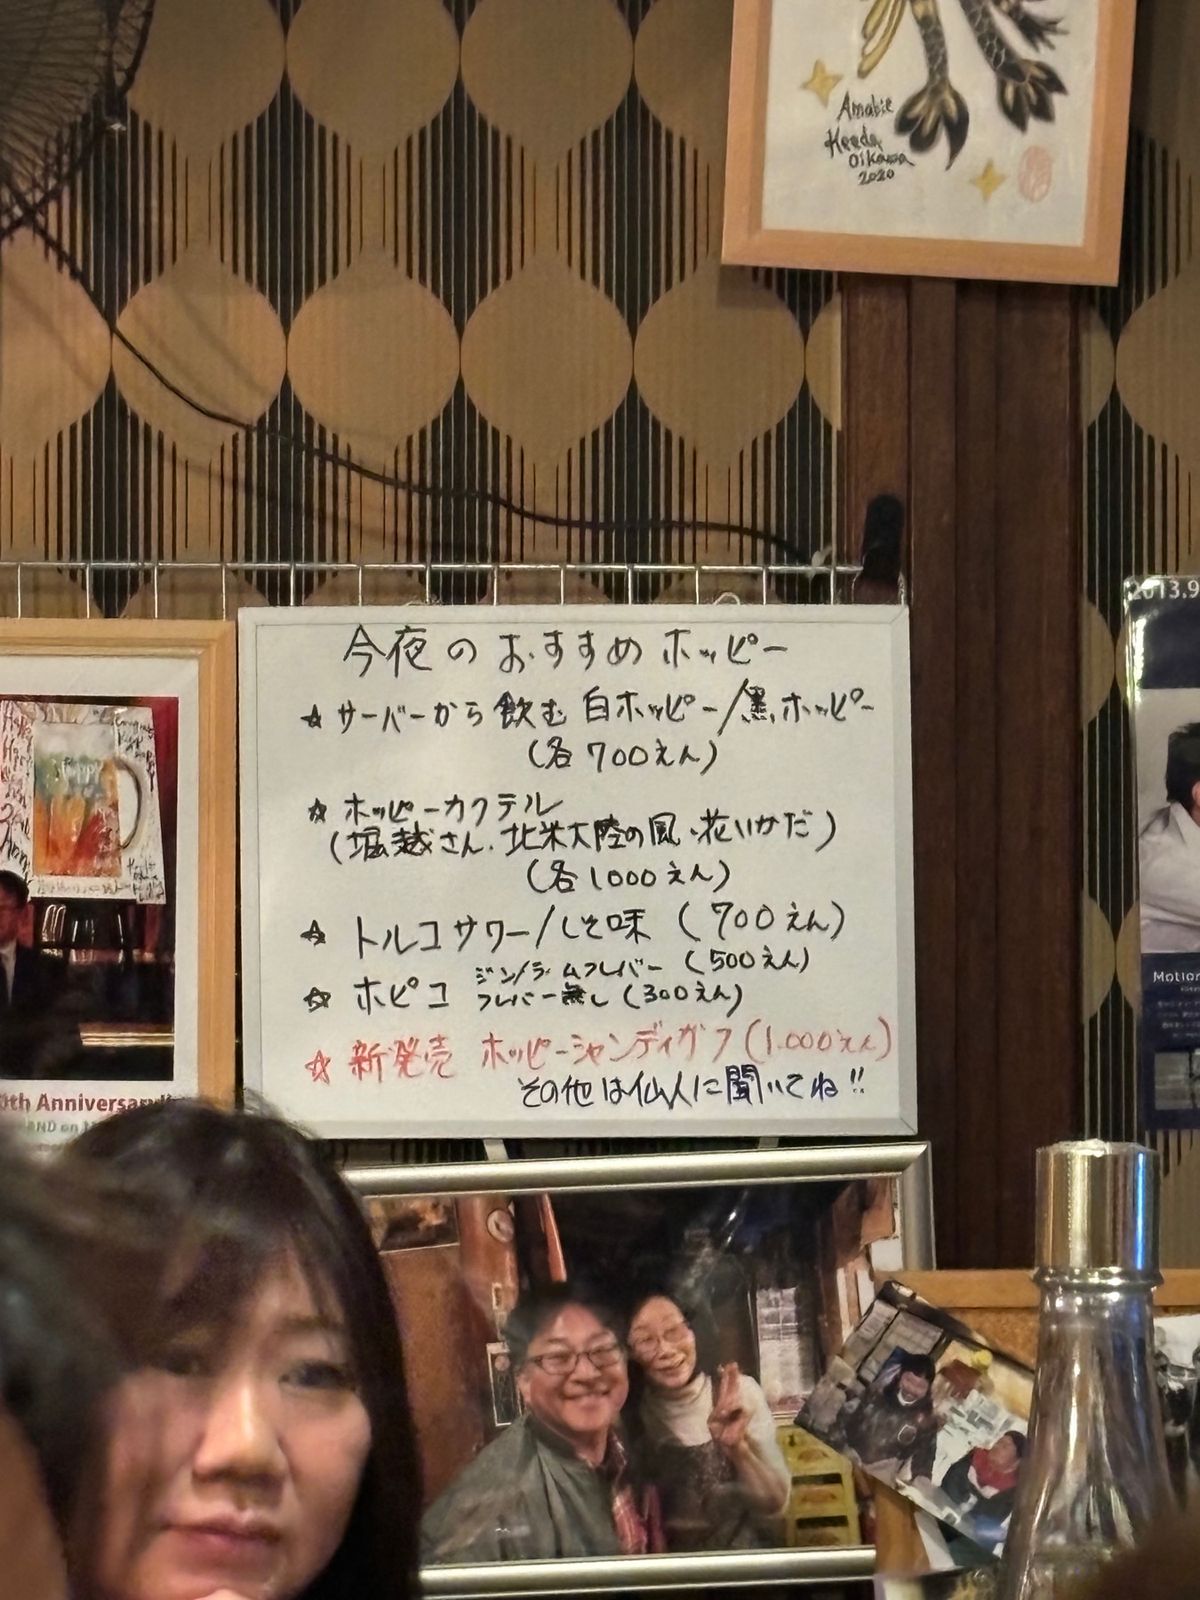 Amabie
Keeda
Oikawa
2020
2013.9
今夜のおすすめホッピー
☆サーバーから飲む 白ホッピー/黒ホッピー
(各700えん)
☆ホッピーカクテル
(堀越さん、北米大陸の風、花いかだ)
(各1000えん)
☆トルコサワー/しそ味 (700えん)
☆ホピコ ジン/ラムフレバー (500えん)
フレバー無し (300えん)
☆新発売 ホッピーシャンディガフ (1.000えん)
その他は仙人に聞いてね!!
0th Anniversary
Motion